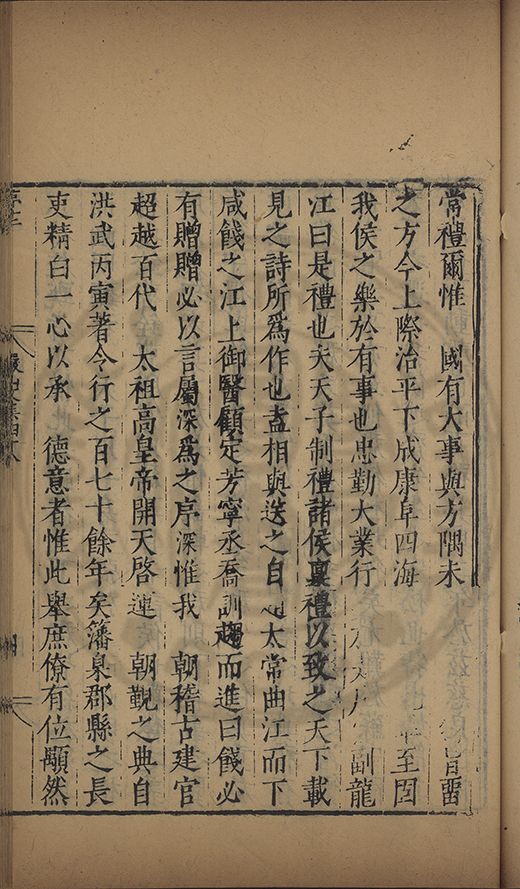 常禮爾惟　國有大事與方隅未
之方今上際治平下成康阜四海　至囹
我侯之樂於有事也忠勤大業行　副龍
江曰是禮也夫天子制禮諸侯稟禮以致之天下載
見之詩所爲作也盍相與送之自　太常曲江而下
咸餞之江上御醫顧定芳寧丞喬訓趨而進曰餞必
有贈贈必以言屬深爲之序深惟我　朝稽古建官
超越百代　太祖高皇帝開天啓運　朝覲之典自
洪武丙寅著令行之百七十餘年矣藩臬郡縣之長
吏精白一心以承　德意者惟此舉庶僚有位顒然